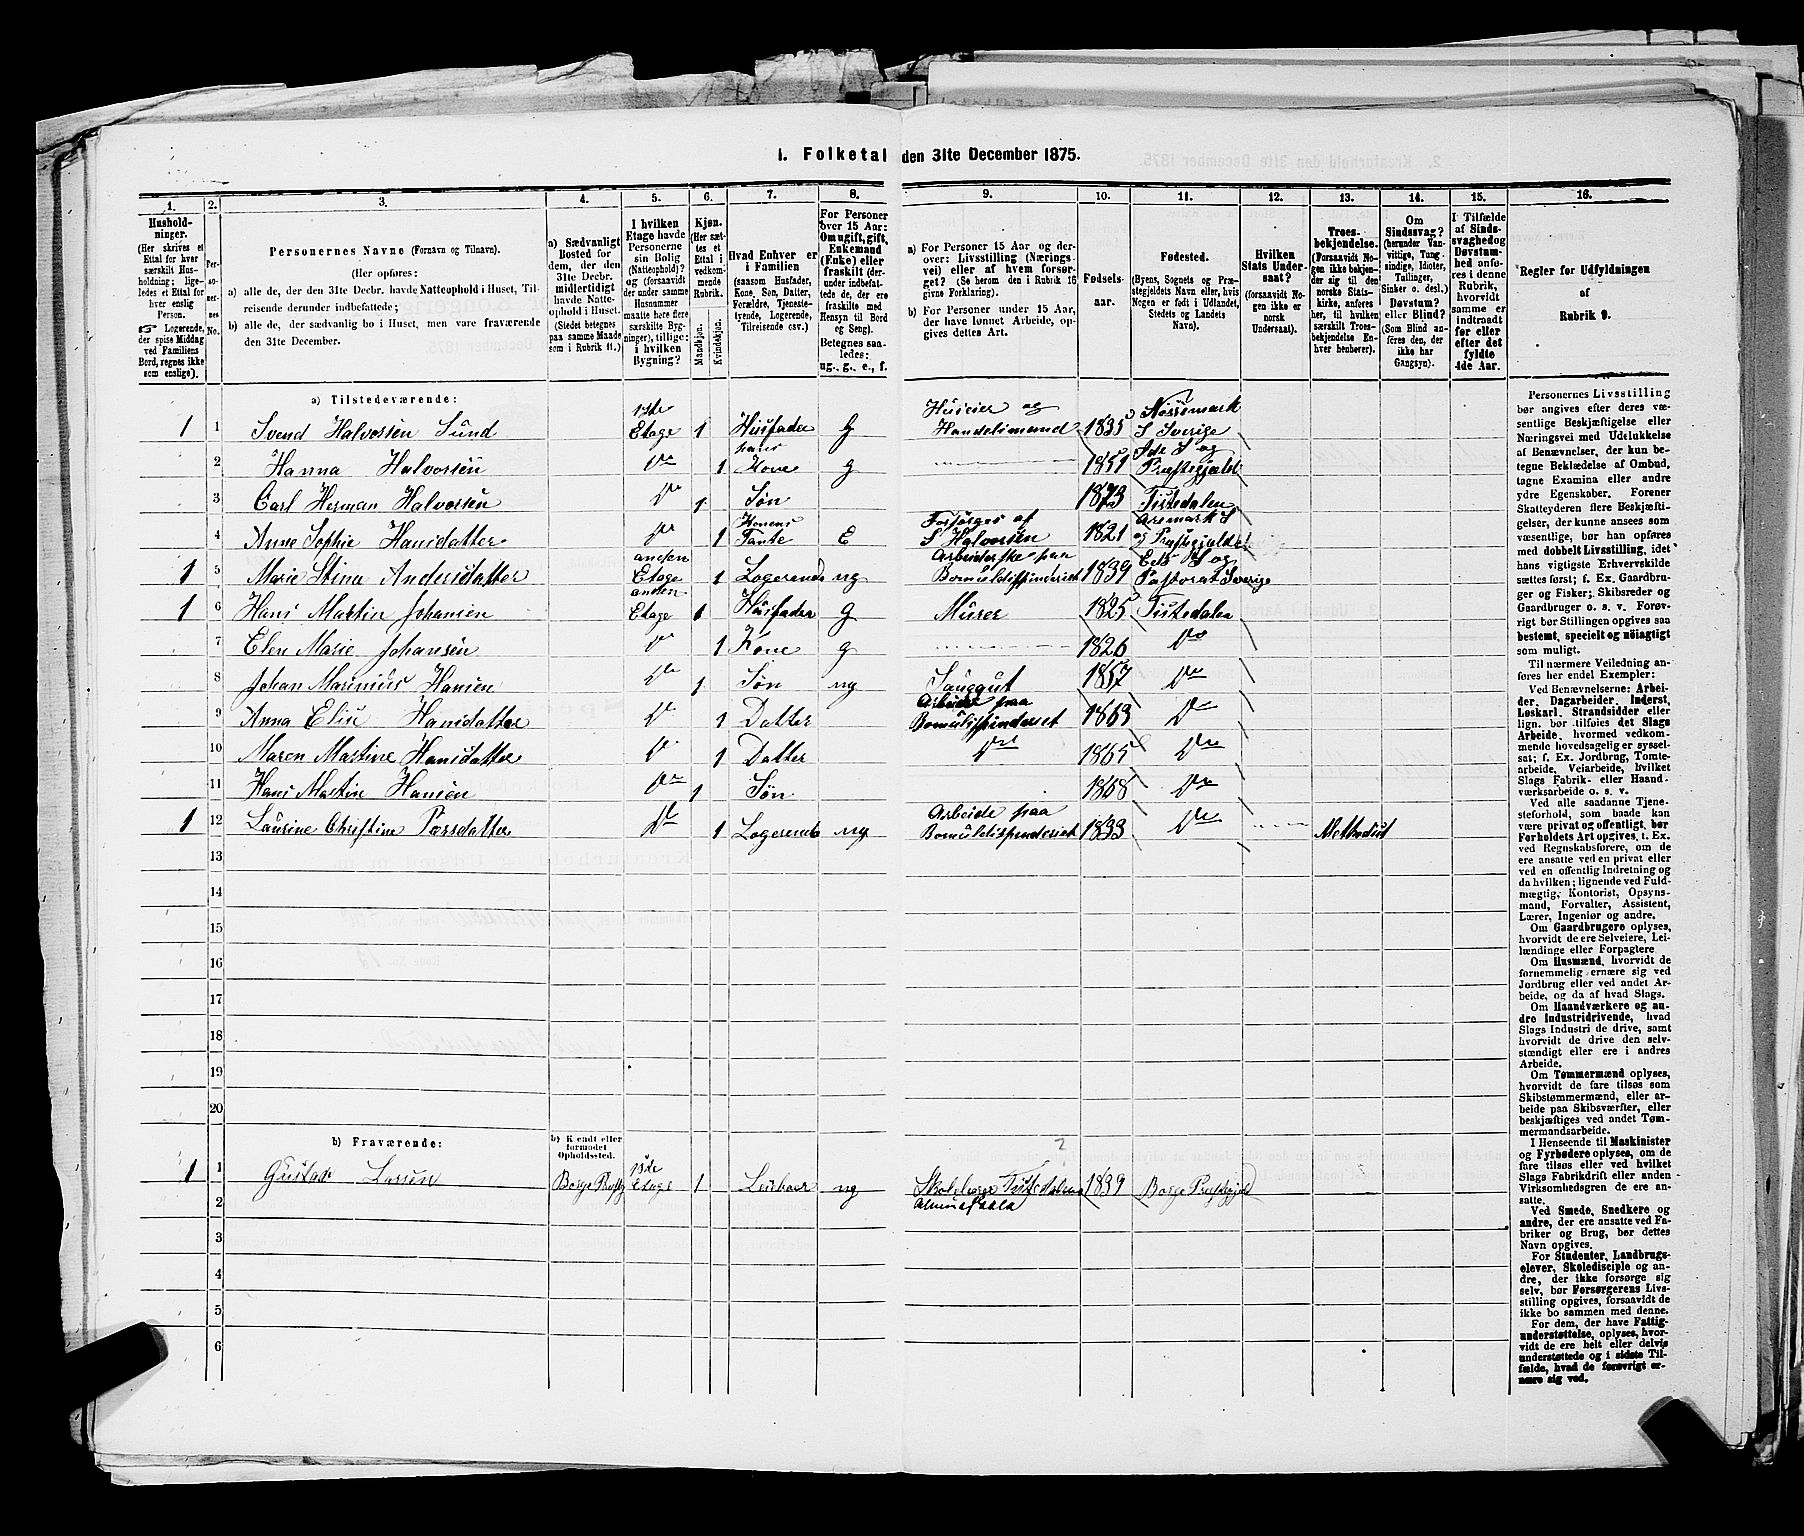 1. Folketal den 31te December 1875.
1.
2.
3.
4.
5.
6.
7.
8.
9.
10.
11.
12.
13.
14.
15.
16.
Hushold-
ninger.
(Her skrives et
Ettal for hver
særskilt Hus-
holdning; lige-
ledes et Ettal
for enslig
Person.
☞ Logerende,
der spise Middag
ved Familiens
Bord, regnes ikke
som enslige).
Per-
so-
ner-
nes
No.
Personernes Navne (Fornavn og Tilnavn).
(Her opføres:
a) alle de, der den 31te Decbr. havde Natteophold i Huset, Til-
reisende derunder indbefattede;
b) alle de, der sædvanlig bo i Huset, men vare fraværende
den 31te December.
a) Sædvanligt
Bosted for
dem, der den
31te Decbr.
midlertidigt
havde Natte-
ophold i Huset.
(Stedet betegnes
paa samme Maade
som i Rubrik 11.)
I hvilken
Etage havde
Personerne
sin Bolig
(Natteophold)?
(forsaavidt
der under samme
Husnummer
maatte høre flere
særskilte Byg-
ninger), tillige:
i hvilken
Bygning?
Kjøn.
(Her sæt-
tes et
Ettal i
vedkom-
mende
Rubrik.
Mandkjøn.
Kvindekjøn.
Hvad Enhver er
i Familien
(saasom Husfader,
Kone, Søn, Datter,
Forældre, Tjeneste-
tyende, Logerende,
Tilreisende osv.)
For Personer
over 15 Aar:
Om ugift, gift,
Enkemand
(Enke) eller
fraskilt (der-
under indbefat-
tede, de der ere
fraskilte med
Hensyn til Bord
og Seng).
Betegnes saa-
ledes:
ug., g., e., f.
a) For Personer 15 Aar og der-
over: Livsstilling (Nærings-
vei) eller af hvem forsør-
get? (Se herom den i Rubrik 16
givne Forklaring).
b) For Personer under 15 Aar,
der have lønnet Arbeide, op-
gives dettes Art.
Fødsels-
aar.
Fødested.
(Byens, Sognets og Præ-
stegjeldets Navn eller, hvis
Nogen er født i Udlandet,
Stedets og Landets
Navn).
Hvilken
Stats Under-
saat?
(forsaavidt No-
gen ikke er
norsk
Undersaat).
Troes-
bekjendelse.
(Forsaavidt No-
gen ikke bekjen-
der sig til den
norske Stats-
kirke, anføres
her, til hvilken
særskilt Troes-
bekjendelse En-
hver henhører).
Om
Sindssvag?
(herunder Van-
vittige, Tung-
sindige, Idioter,
Tullinger,
Sinker o. desl.).
Døvstum?
eller Blind?
(Som Blind an-
føres den, der
ikke har
Gangsyn).
I Tilfælde
af Sinds-
svaghed og
Døvstum-
hed anfø-
res i denne
Rubrik,
hvorvidt
samme er
indtraadt
før eller
efter det
fyldte
4de Aar.
Regler for Udfyldningen
af
Rubrik 9.
a) Tilstedeværende:
1 1 Svend Halvorsen Sund 1ste Etage 1 Husfader G Huseier og Handelsmand 1835 Nössemark S Sverige
2 Hanna Halvorsen Do 1 hans Kone g 1851 Ide S og Præstegjeld
3 Carl Herman Halvorsen Do 1 Søn 1873 Tistedalen
4 Anne Sophie Hansdatter Do 1 Konens Tante E Forsørges af S Halvorsen 1821 Aremark S og Præstegjeld
1 5 Marie Stina Andersdatter anden Etage 1 Logerende ug Arbeiderske paa Bomuldsspinderiet 1839 Eds S og Pastorat Sverige
1 6 Hans Martin Johansen anden Etage 1 Husfader g Murer 1825 Tistedalen
7 Elen Marie Johansen Do 1 Kone g 1826 Do
8 Johan Marinius Hansen Do 1 Søn ug Sauggut 1857 Do
9 Anna Elise Hansdatter Do 1 Datter Arbeider paa Bomuldsspinderiet 1863 Do
10 Maren Martine Hansdatter Do 1 Datter Do 1865 Do
11 Hans Martin Hansen Do 1 Søn 1868 Do
1 12 Laurine Christine Larsdatter Do 1 Logerende ug Arbeide paa Bomuldsspinderiet 1833 Do Methodist
13
14
15
16
17
18
19
20
b) Fraværende:
b) Kendt eller
formodet
Opholdssted.
1 1 Gustav Larsen Borge Prstg 1ste Etage 1 Leieboer ug Skolelærer Tistedalens Almueskole 1839 Borge Prstgjeld
2
3
4
5
6
Personernes Livsstilling
bør angives efter deres væ-
sentlige Beskjæftigelse eller
Næringsvei med Udelukkelse
af Benævnelser, der kun be-
tegne Beklædelse af Ombud,
tagne Examina eller andre
ydre Egenskaber. Forener
Skatteyderen flere Beskjæfti-
gelser, der kunne ansees som
væsentlige, bør han opføres
med dobbelt Livsstilling, idet
hans vigtigste Erhvervskilde
sættes først; f. Ex. Gaardbru-
ger og Fisker; Skibsreder og
Gaardbruger o. s. v. Forøv-
rigt bør Stillingen opgives saa
bestemt, specielt og nöiagtigt
som muligt.
Til nærmere Veiledning an-
føres her endel Exempler:
Ved Benævnelserne: Arbei-
der, Dagarbeider, Inderst,
Løskarl, Strandsidder eller
lign. bør tilføies det Slags
Arbeide, hvormed vedkom-
mende hovedsagelig er syssel-
sat; f. Ex. Jordbrug, Tomte-
arbeide, Veiarbeide, hvilket
Slags Fabrik- eller Haand-
værksarbeide o. s. v.
Ved alle saadanne Tjene-
steforhold, som baade kan
være privat og offentligt, bør
Forholdets Art opgives, t. Ex.
ved Regnskabsførere, om de
ere ansatte ved en privat eller
ved en offentlig Indretning og
da hvilken; lignende ved Fuld-
mægtig, Kontorist, Opsyns-
mand, Forvalter, Assistent,
Lærer, Ingeniør og andre.
Om Gaardbrugere oplyses,
hvorvidt de ere Selveiere, Lei-
lændinge eller Forpagtere
Om Husmænd, hvorvidt de
fornemmelig ernære sig ved
Jordbrug eller ved andet Ar-
beide, og da af hvad Slags.
Om Haandværkere og an-
dre Industridrivende, hvad
Slags Industri de drive, samt
hvorvidt de drive den selv-
stændigt eller ere i andres
Arbeide.
Om Tømmermænd oplyses,
hvorvidt de fare tilsøs som
Skibstømmermænd, eller ar-
beide paa Skibsværfter, eller
beskjæftiges ved andet Tøm-
mermandsarbeide.
I Henseende til Maskinister
og Fyrbødere oplyses, om de
fare tilsøs eller ved hvilket
Slags Fabrikdrift eller anden
Virksomhedsgren de ere an-
satte.
Ved Smede, Snedkere og
andre, der ere ansatte ved Fa-
briker og Brug, bør dettes
Navn opgives.
For Studenter, Landbrugs-
elever, Skoledisciple og an-
dre, der ikke forsørge sig
selv, bør Forsørgerens Livs-
stilling opgives, forsaavidt de
ikke bo sammen med denne.
For dem, der have Fattig-
understøttelse, oplyses, hvor-
vidt de ere helt eller delvis
understøttede og i sidste Til-
fælde, hvad de forøvrigt er-
nære sig ved.